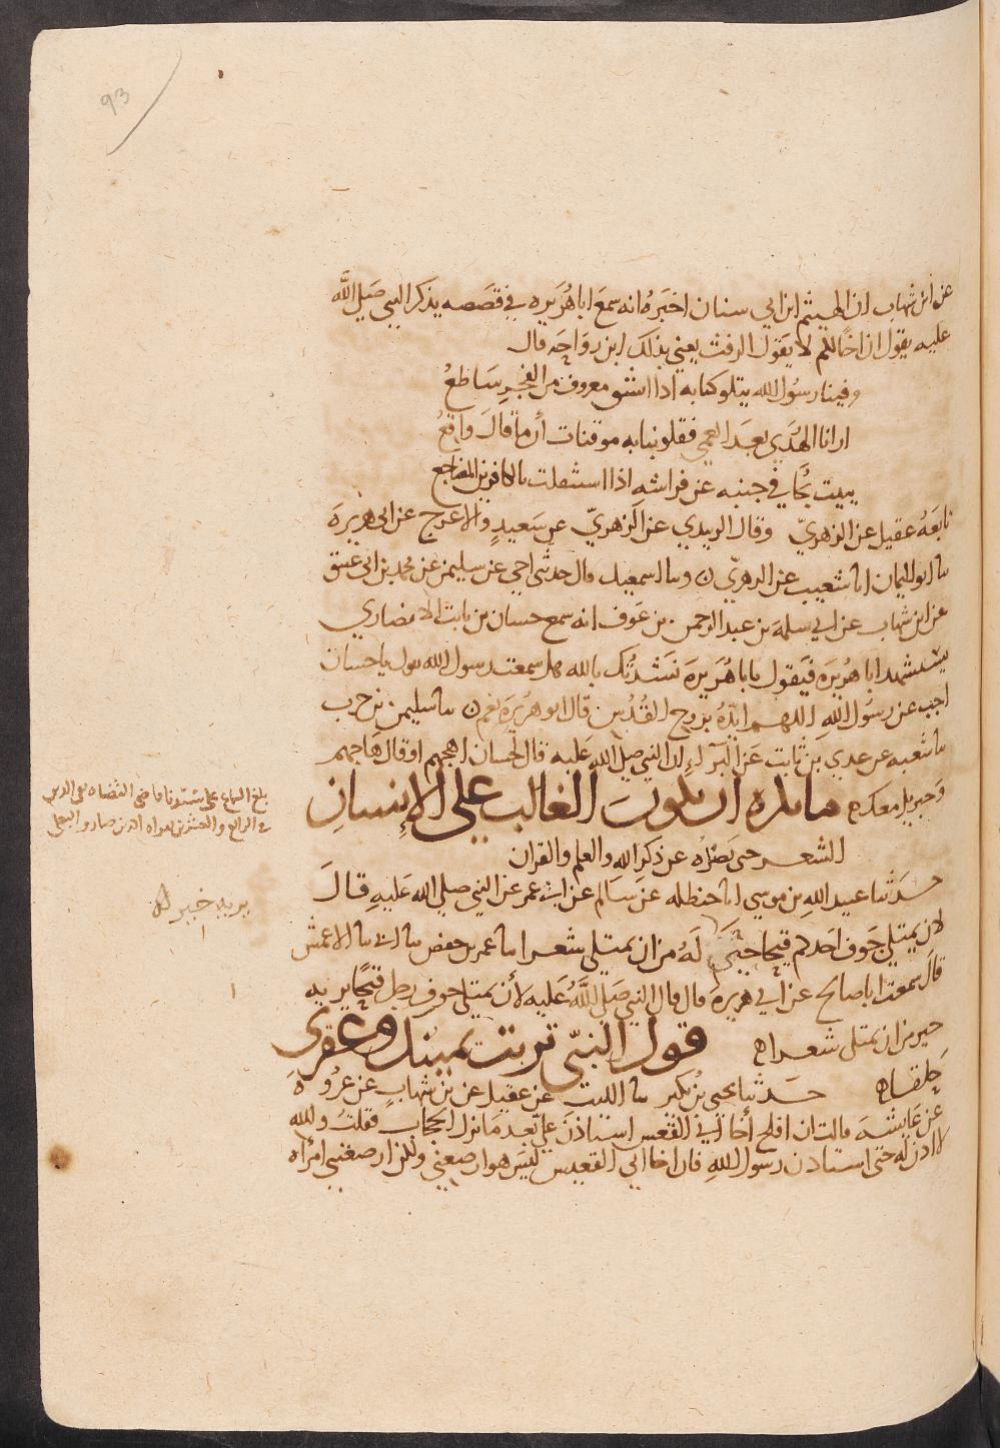 93
عن ابن شهاب ان الهيثم ابن ابي سنان اخبره انه سمع ابا هريره في قصصه يذكر النبي صلي الله
عليه يقول ان اخا لكم لا يقول الرفث يعني بذلك ابن رواحه قال
وفينا رسول الله يتلو كتابه اذا انشق معروف من الفجر ساطع
ارانا الهدي بعد العمي فقلوبنا به موقنات أن ما قال واقع
يبيت يجافي جنبه عن فراشه اذا استثقلت بالكافرين المضاجع
تابعه عقيل عن الزهري وقال الزبيدي عن الزهري عن سعيد والاعرج عن ابي هريرة
نا ابو اليمان انا شعيب عن الزهري ن ونا اسمعيل قال حدثني اخي عن سليمن عن محمد بن ابي عتيق
عن ابن شهاب عن ابي سلمة بن عبد الرحمن بن عوف انه سمع حسان بن ثابت الانصاري
يستشهد ابا هريرة فيقول يابا هريرة نشدتك بالله هل سمعت رسول الله يقول يا حسان
اجب عن رسول الله اللهم ايده بروح القدس قال ابو هريرة نعم ن نا سليمن بن حرب
نا شعبه عن عدي بن ثابت عن البراء ان النبي صلي الله عليه قال لحسان اهجهم او قال هاجهم
وجبريل معك ه ما يكره ان يكون الغالب علي الإنسان
الشعر حتى يصده عن ذكر الله والعلم والقران
حدثنا عبيد الله بن موسي انا حنظله عن سالم عن ابن عمر عن النبي صلي الله عليه قال
لان يمتلي جوف احدكم قيحا خير له من ان يمتلي شعرا نا عمر بن حفص نا ابي نا الاعمش
قال سمعت ابا صالح عن ابي هريرة قال قال النبي صلي الله عليه لأن يمتلي جوف رجل قيحا يريه
خير من ان يمتلي شعرا ه قول النبي تربت يمينك وعقرى
حلقى ه حدثنا يحيى بن بكير نا الليث عن عقيل عن بن شهاب عن عروة
عن عايشة قالت ان افلح أخا ابي القعيس استاذن علي بعد ما نزل الحجاب فقلت والله
لا اذن له حتى استاذن رسول الله فان اخا ابي القعيس ليس هو ارضعني ولكن ارضعتني امرأه
بلغ السماع على قاضي القضاه
في الرابع والعشرين
يريه خير له